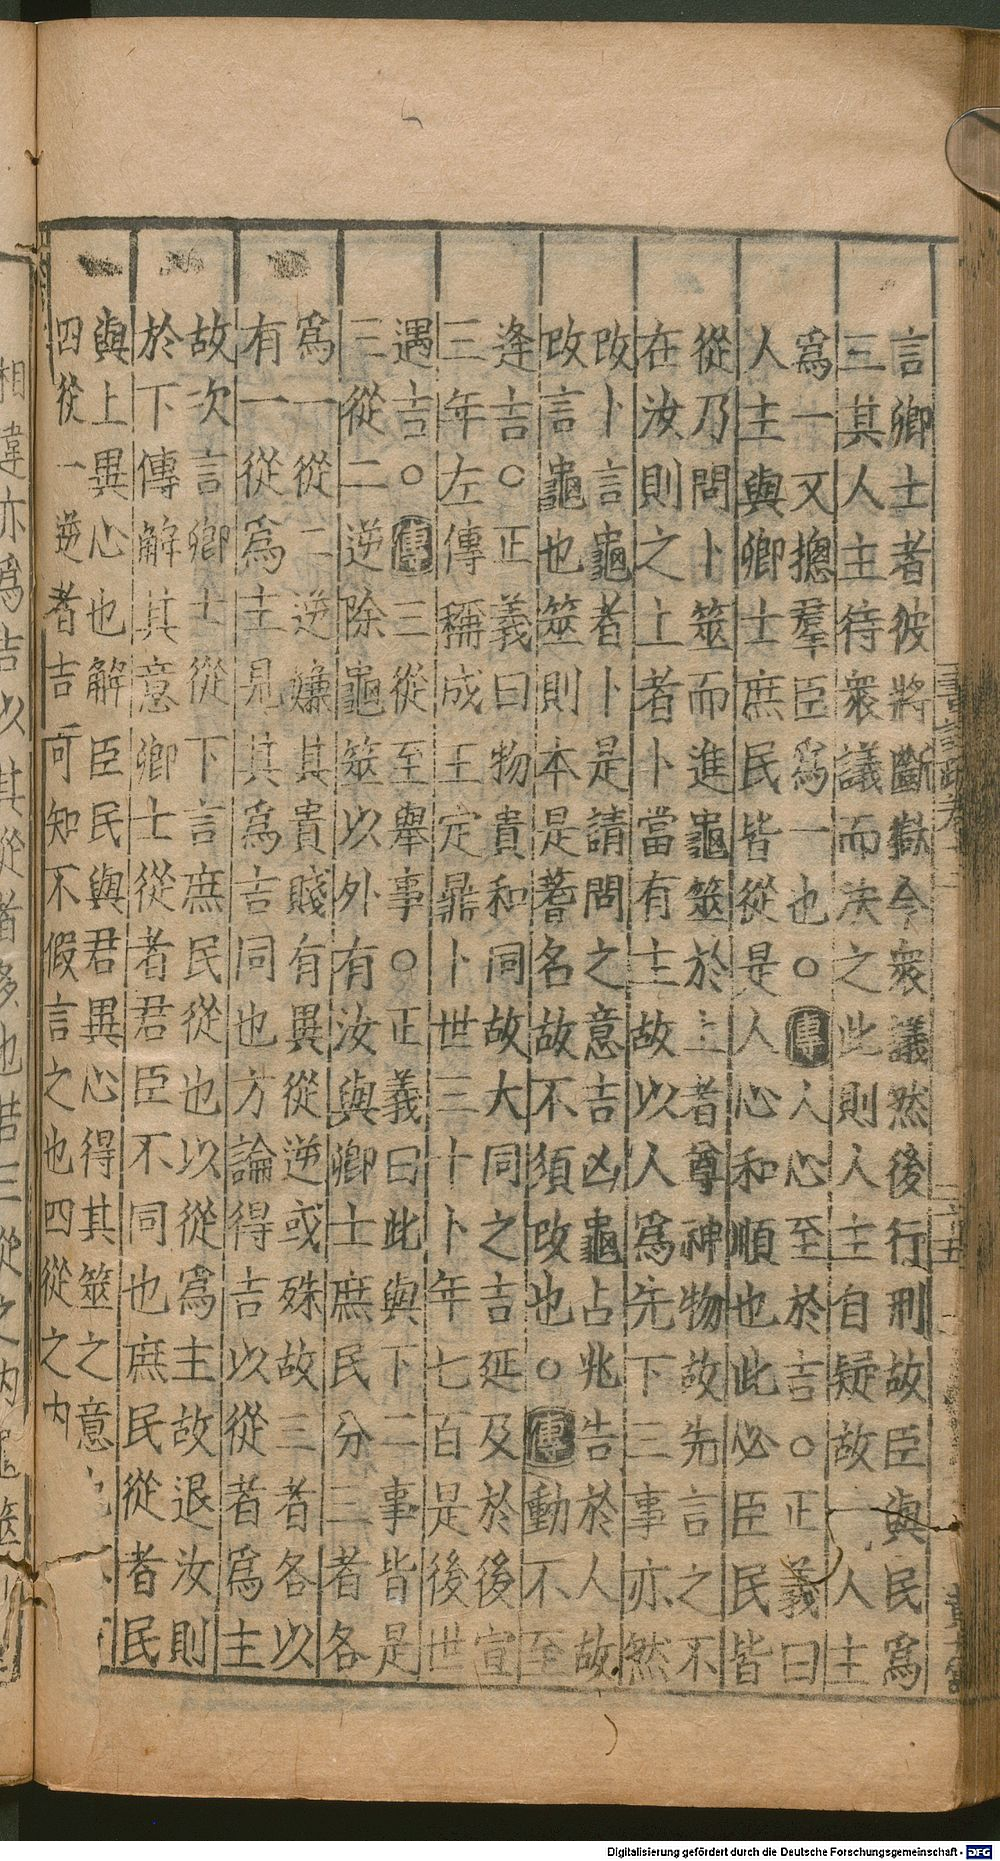 書註疏卷十一
二十五
言卿士者彼將斷獄令衆議然後行刑故臣與民爲
三其人主待衆議而决之此則人主自疑故一人主
爲一又摠羣臣爲一也○傳人心至於吉○正義曰
人主與卿士庶民皆從是人心和順也此必臣民皆
從乃問卜筮而進龜筮於上者尊神物故先言之不
在汝則之上者卜當有主故以人爲先下三事亦然
改卜言龜者卜是請問之意吉凶龜占兆告於人故
改言龜也筮則本是蓍名故不須改也○傳動不至
逢吉○正義曰物貴和同故大同之吉延及於後宣
三年左傳稱成王定鼎卜世三十卜年七百是後世
遇吉○傳三從至舉事○正義曰此與下二事皆是
三從二逆除龜筮以外有汝與卿士庶民分三者各
爲一從二逆嫌其貴賤有異從逆或殊故三者各以
有一從爲主見其爲吉同也方論得吉以從者爲主
故次言卿士從下言庶民從也以從爲主故退汝則
於下傳解其意卿士從者君臣不同也庶民從者民
與上異心也解臣民與君異心得其筮之意也
四從一逆者吉可知不假言之也四從之内
相違亦爲吉以其從者多也若三從之内龜筮
Digitalisierung gefördert durch die Deutsche Forschungsgemeinschaft - DFG